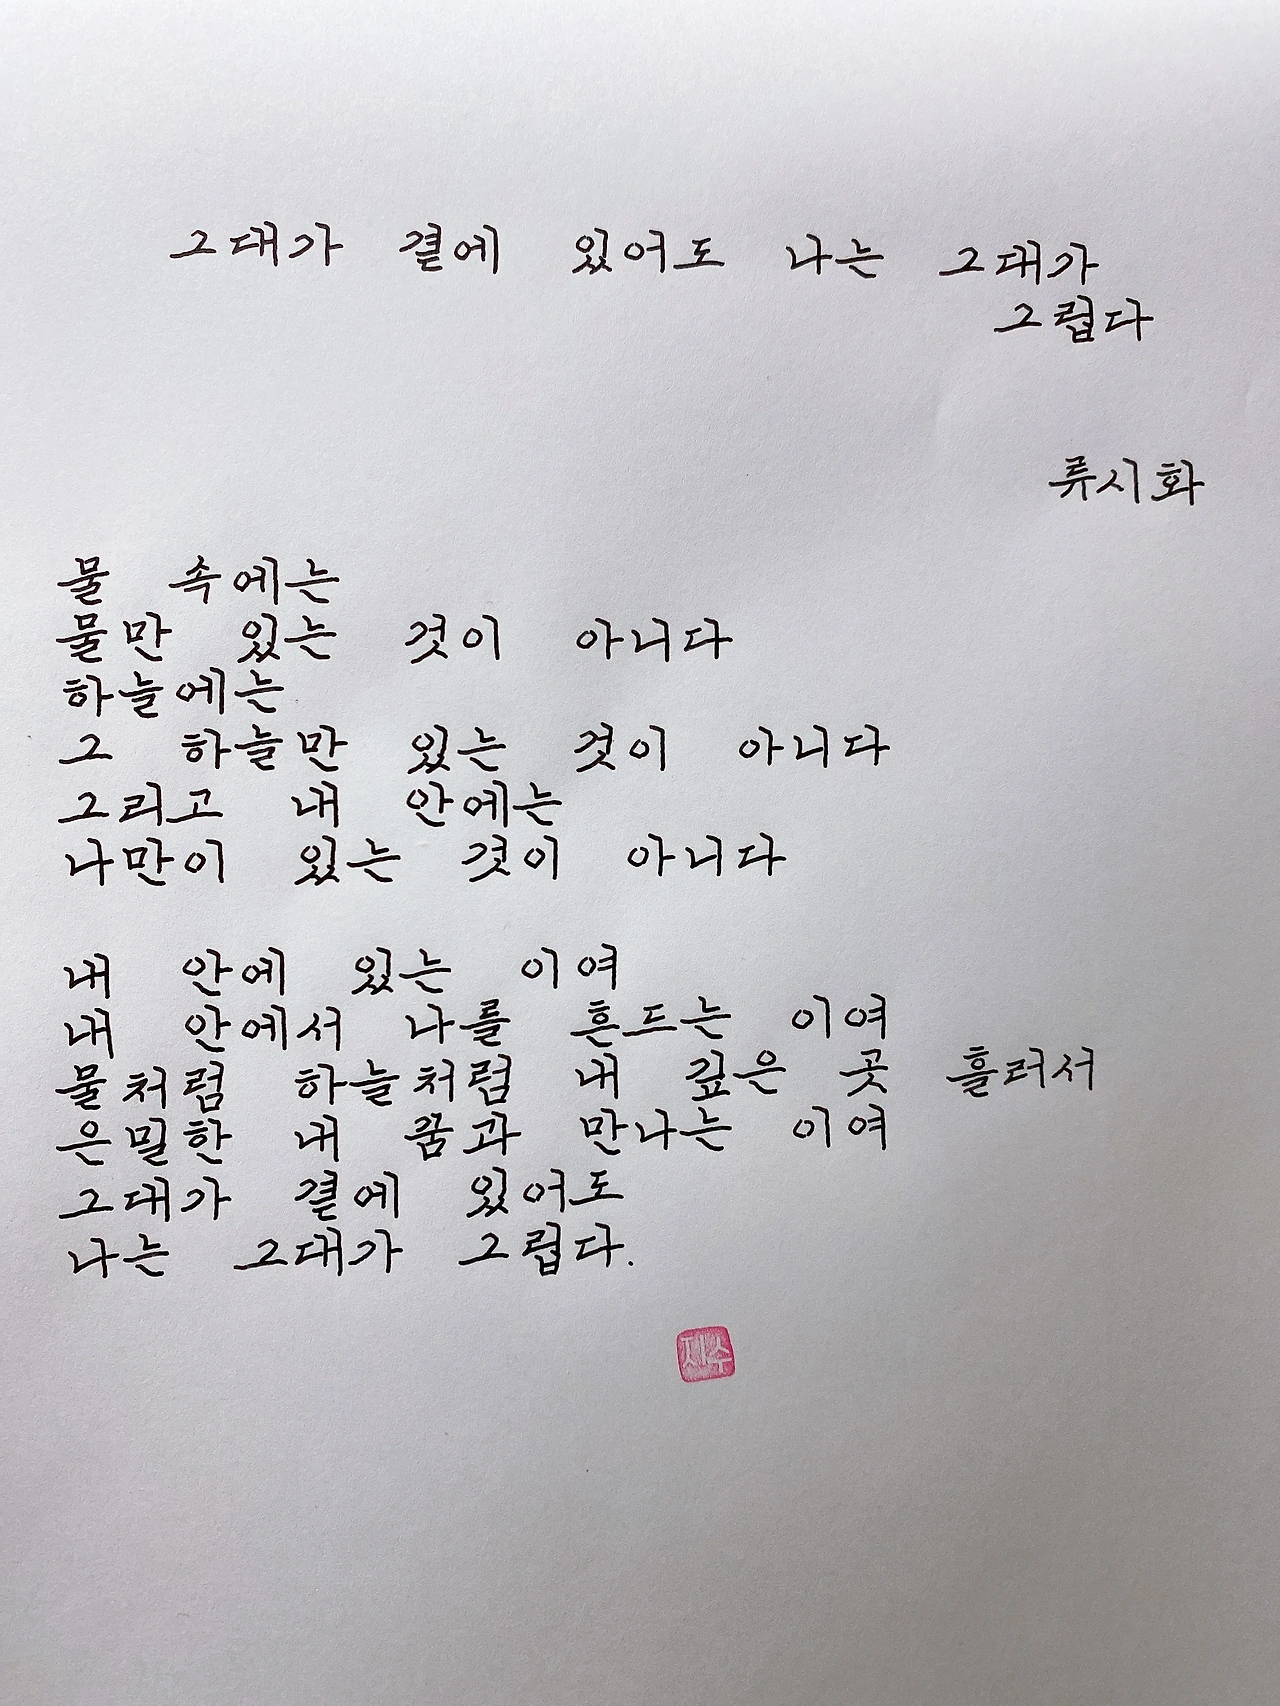 그대가 곁에 있어도 나는 그대가
그립다
류시화
물 속에는
물만 있는 것이 아니다
하늘에는
그 하늘만 있는 것이 아니다
그리고 내 안에는
나만이 있는 것이 아니다
내 안에 있는 이여
내 안에서 나를 흔드는 이여
물처럼 하늘처럼 내 깊은 곳 흘러서
은밀한 내 꿈과 만나는 이여
그대가 곁에 있어도
나는 그대가 그립다.